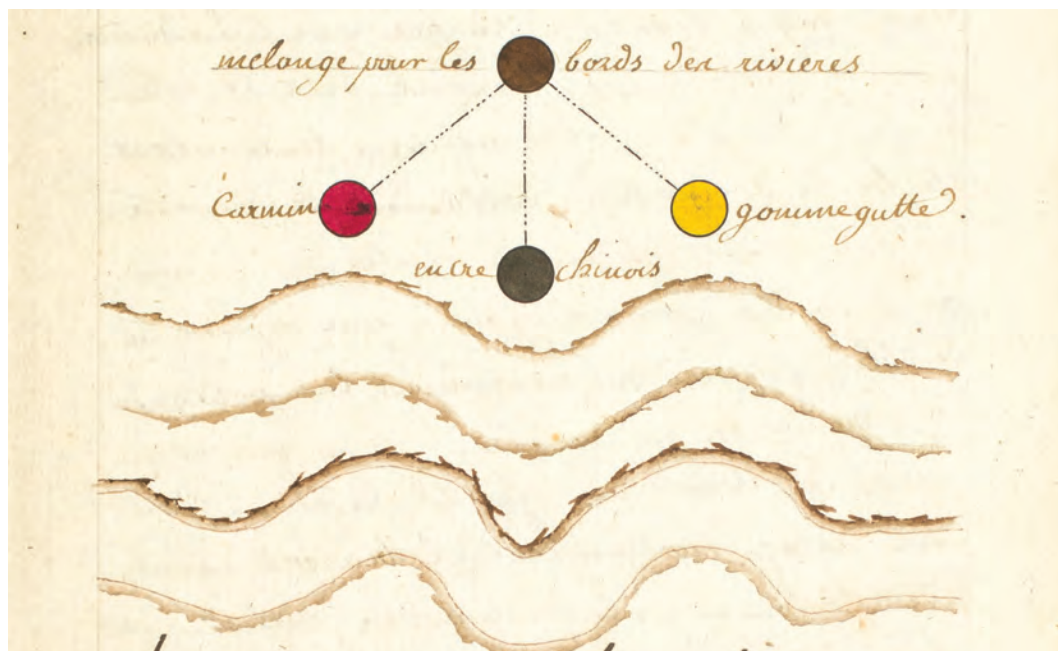 melange pour les bords des rivieres
Carmin gomme gutte.
encre chinois